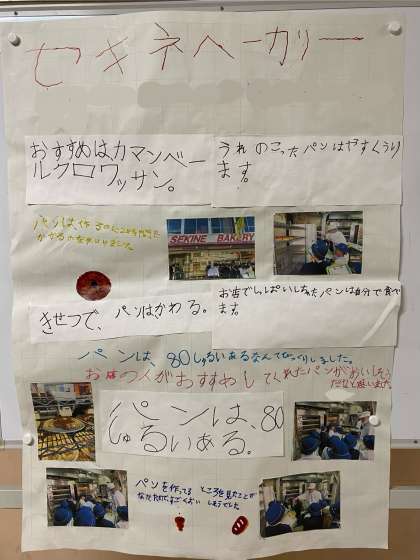 セキネベーカリー
おすすめはカマンベー
ルクロワッサン。
うれのこったパンはやすくうり
ます。
パンは作るのに
かかる
SEKINE BAKERY
きせつで、パンはかわる。
お店でしっぱいしちゃったパンは自分で食べ
ます。
パンは80しゅるいあるなんてびっくりしました。
お店の人がおすすめしてくれたパンがおいしそう
だなと思いました
パンは、80
しゅるいある。
パンを作ってる ところを見たことが
なかったので、すごくおいしそうでした